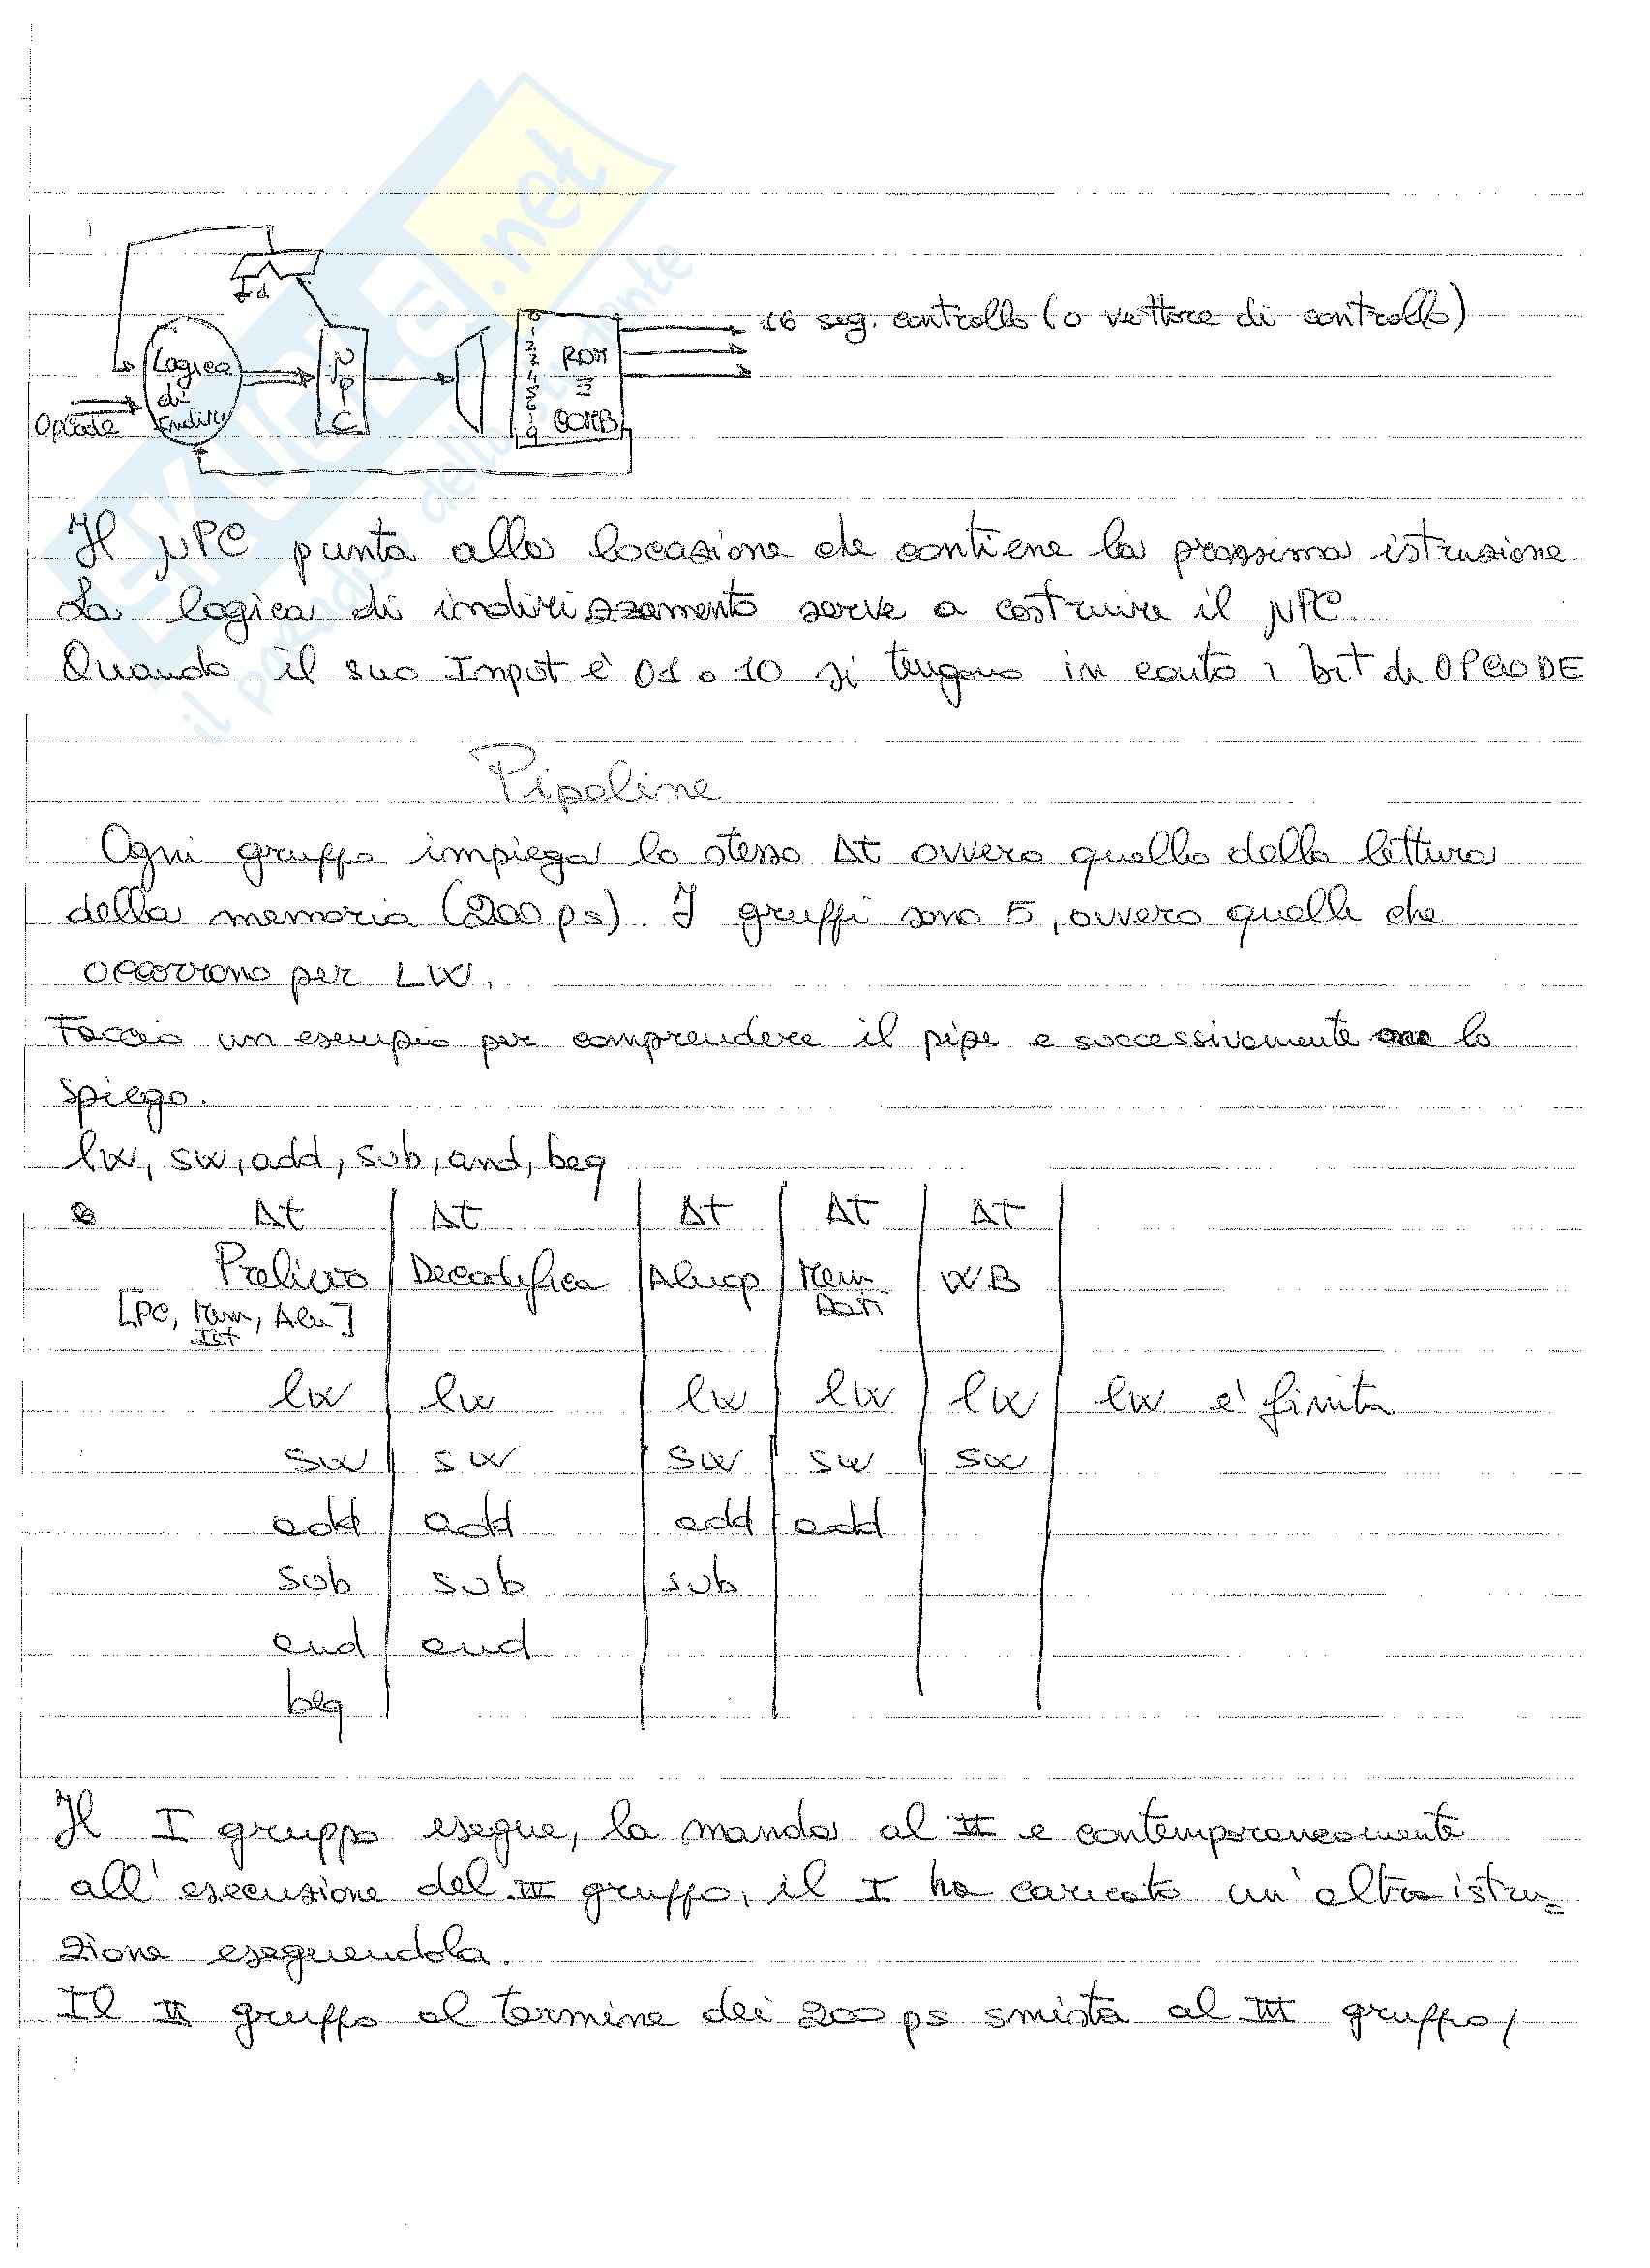 16 seg. controllo (o vettore di controllo)
Id
Logica
di
Indiriz
OpCode
μ
P
C
0
1
2
3
4
5
6
1
9
ROM
≡
COMB
Il μPC punta alla locazione che contiene la prossima istruzione
La logica di indirizzamento serve a costruire il μPC.
Quando il suo Input è 01 o 10 si tengono in conto i bit di OPCODE
Pipeline
Ogni gruppo impiega lo stesso Δt ovvero quello della lettura
della memoria (200 ps). I gruppi sono 5, ovvero quelli che
occorrono per LW.
Faccio un esempio per comprendere il pipe e successivamente lo
spiego.
lw, sw, add, sub, and, beq
Δt Δt Δt Δt Δt
Prelievo Decodifica Aluop Mem Dati WB
[PC, Mem Ist, Alu]
lw lw lw lw lw lw e' finita
sw sw sw sw sw
add add add add
sub sub sub
and and
beq
Il I gruppo esegue, la manda al II e contemporaneamente
all'esecuzione del III gruppo, il I ha caricato un'altra istru=
zione eseguendola.
Il II gruppo al termine dei 200 ps smista al III gruppo,
EKUOLE.net
il p dello ente